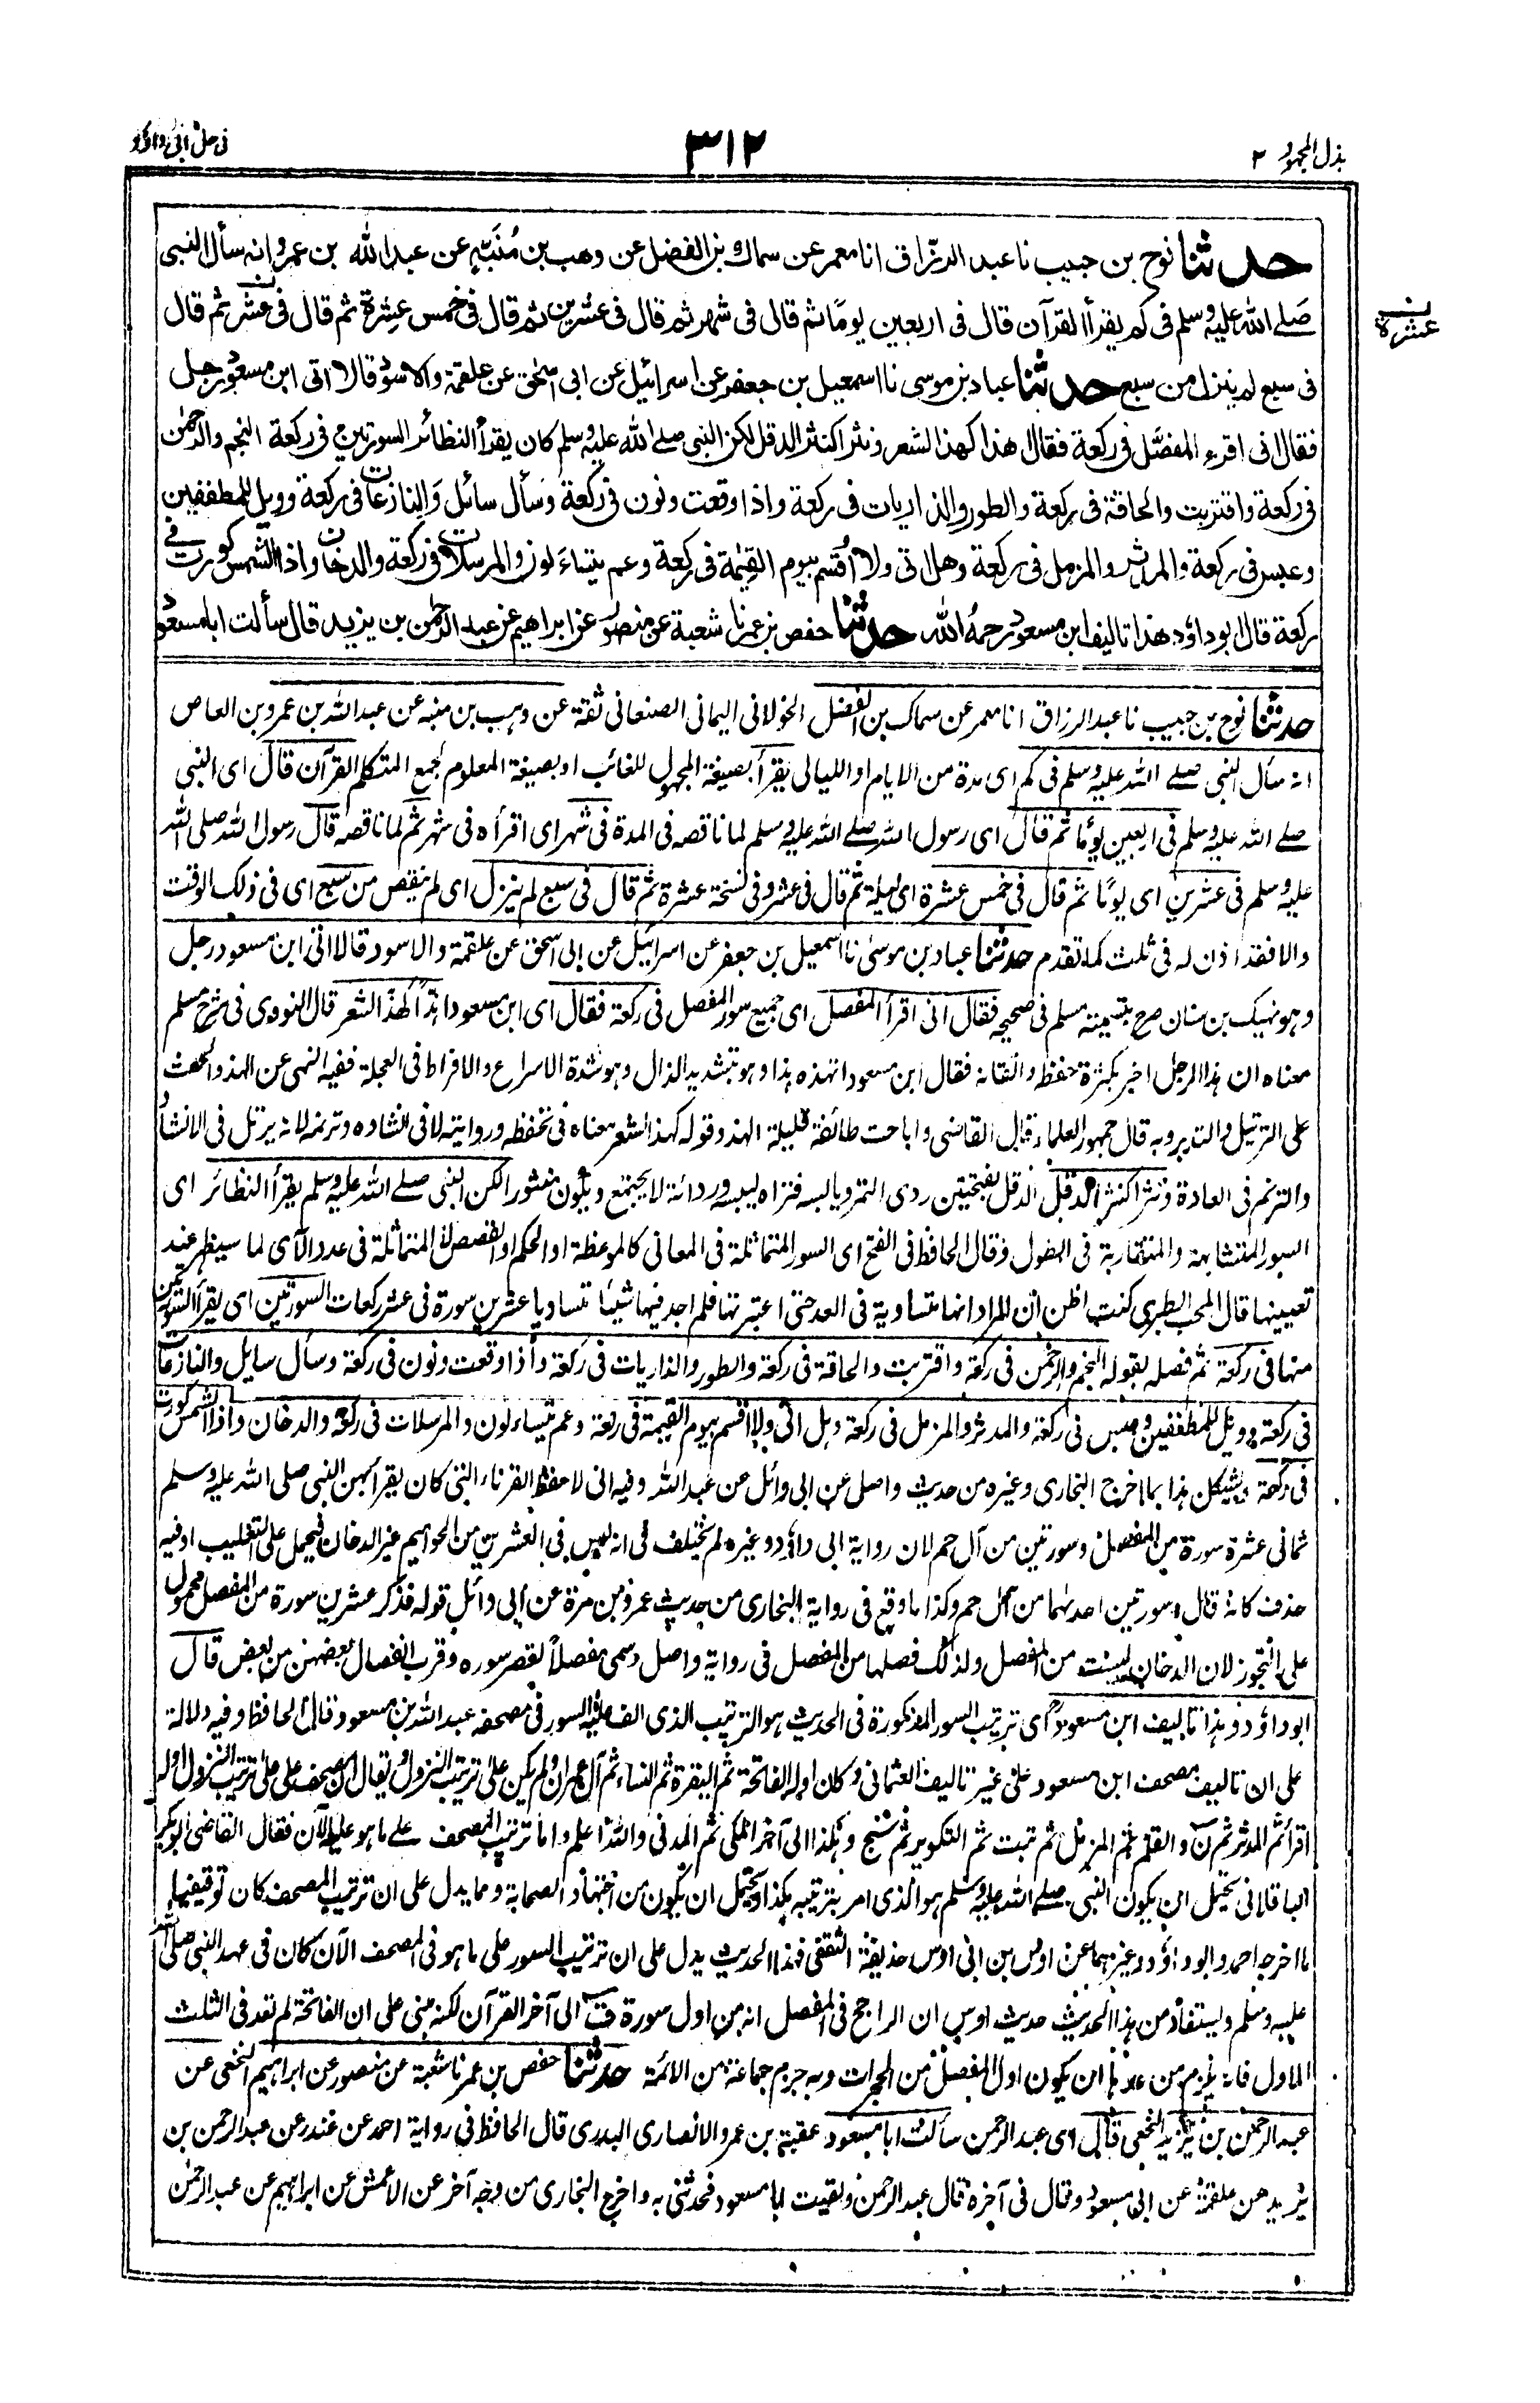 بذل المجهود ٢
٣١٢
فى حل ابى داؤد
حدثنا نوح بن حبيب نا عبد الرزاق انا معمر عن سماك بن الفضل عن وهب بن مُنَبِّهٍ عن عبد الله بن عمرو انه سأل النبى
صلے الله عليه وسلم فى كم يقرأ القرآن قال فى اربعين يومًا ثم قال فى شهر ثم قال فى عشرين ثم قال فى خمس عشرة ثم قال فى عشر ثم قال
ن عشرة
فى سبع لم ينزل من سبع حدثنا عباد بن موسى نا اسمعيل بن جعفر عن اسرائيل عن ابى اسحٰق عن علقمة والاسود قالا اتى ابن مسعود رجل
فقال انى اقرء المفصّل فى ركعة فقال اهذا كهذ الشعر ونثرا كنثر الدقل لكن النبى صلے الله عليه وسلم كان يقرأ النظائر السورتين فى ركعة النجم والرحمٰن
فى ركعة واقتربت والحاقة فى ركعة والطور والذاريات فى ركعة واذا وقعت ونون فى ركعة وسأل سائل والنازعات فى ركعة وويل للمطففين
وعبس فى ركعة والمدثر والمزمل فى ركعة وهل اتى ولا اُقسم بيوم القيٰمة فى ركعة وعم يتساءلون والمرسلات فى ركعة والدخان واذا الشمس كورت فى
ركعة قال ابو داؤد هذا تاليف ابن مسعود رحمهُ الله حدثنا حفص بن عمر نا شعبة عن منصور عن ابراهيم عن عبد الرحمٰن بن يزيد قال سألت ابا مسعود
حدثنا نوح بن حبيب نا عبد الرزاق انا معمر عن سماك بن الفضل الخولانى اليمانى الصنعانى ثقة عن وهب بن منبه عن عبد الله بن عمرو بن العاص
انه سأل النبى صلے الله عليه وسلم فى كم اى مدة من الايام او الليالى يقرأ بصيغة المجهول للغائب او بصيغة المعلوم لجمع المتكلم القرآن قال اى النبى
صلے الله عليه وسلم فى اربعين يومًا ثم قال اى رسول الله صلے الله عليه وسلم لما ناقصه فى المدة فى شهر اى اقرأه فى شهر ثم لما ناقصه قال رسول الله صلى الله
عليه وسلم فى عشرين اى يومًا ثم قال فى خمس عشرة اى ليلة ثم قال فى عشر وفى نسخة عشرة ثم قال فى سبع لم ينزل اى لم ينقص من سبع اى فى ذلك الوقت
والا فقد اذن له فى ثلث كما تقدم حدثنا عباد بن موسىٰ نا اسمعيل بن جعفر عن اسرائيل عن ابى اسحق عن علقمة والاسود قالا اتى ابن مسعود رجل
وهو نهيك بن سنان صرح بتسميته مسلم فى صحيحه فقال انى اقرأ المفصل اى جميع سور المفصل فى ركعة فقال اى ابن مسعود اهذًّا كهذّ الشعر قال النووى فى شرح مسلم
معناه ان هذا الرجل اخبر بكثرة حفظه واتقانه فقال ابن مسعود اتهذه هذا وهو بتشديد الذال وهو شدة الاسراع والافراط فى العجلة ففيه النهى عن الهذ والحث
على الترتيل والتدبر وبه قال جمهور العلماء قال القاضى واباحت طائفة قليلة الهذ وقوله كهذ الشعر معناه فى تحفظه وروايته لا فى انشاده وترنمه لانه يرتل فى الانشاد
والترنم فى العادة ونثرا كنثر الدقل الدقل بفتحتين ردى التمر ويابسه فتراه ليبسه وردائته لا يجتمع ويكون منثورا لكن النبى صلے الله عليه وسلم يقرأ النظائر اى
السور المتشابهة والمتقاربة فى الطول وقال الحافظ فى الفتح اى السور المتماثلة فى المعانى كالموعظة او الحكم او القصص لا المتماثلة فى عدد الآى لما سيظهر عند
تعيينها قال المحب الطبرى كنت اظن ان المراد انها متساوية فى العد حتى اعتبرتها فلم اجد فيها شيئا متساويا عشرين سورة فى عشر ركعات السورتين اى يقرأ السورتين
منها فى ركعة ثم فصله بقوله النجم والرحمن فى ركعة واقتربت والحاقة فى ركعة والطور والذاريات فى ركعة واذا وقعت ونون فى ركعة وسأل سايل والنازعات
فى ركعة وويل للمطففين وعبس فى ركعة والمدثر والمزمل فى ركعة وهل اتى ولا اقسم بيوم القيمة فى ركعة وعم يتساءلون والمرسلات فى ركعة والدخان واذا الشمس كورت
فى ركعة ويشكل هذا بما اخرج البخارى وغيره من حديث واصل عن ابى وائل عن عبد الله وفيه انى لاحفظ القرناء التى كان يقرأ بهن النبى صلى الله عليه وسلم
ثمانى عشرة سورة من المفصل وسورتين من آل حم لان رواية ابى داؤد وغيره لم تختلف فى انه ليس فى العشرين من الحواميم غير الدخان فيحمل على التغليب او فيه
حذف كانه قال وسورتين احدٰهما من آل حم وكذا ما وقع فى رواية البخارى من حديث عمرو بن مرة عن ابى وائل قوله فذكر عشرين سورة من المفصل محمول
على التجوز لان الدخان ليست من المفصل ولذلك فصلها من المفصل فى رواية واصل وسمى مفصلاً لقصر سوره وقرب انفصال بعضهن من بعض قال
ابو داؤد وهذا تاليف ابن مسعود اى ترتيب السور المذكورة فى الحديث هو الترتيب الذى الف عليه السور فى مصحفه عبد الله بن مسعود قال الحافظ وفيه دلالة
على ان تاليف مصحف ابن مسعود على غير تاليف العثمانى وكان اوله الفاتحة ثم البقرة ثم النساء ثم آل عمران ولم يكن على ترتيب النزول ويقال ان مصحف على على ترتيب النزول اوله
اقرأ ثم المدثر ثم ن والقلم ثم المزمل ثم تبت ثم التكوير ثم سبح وهكذا الى آخر المكى ثم المدنى والله اعلم واما ترتيب المصحف علے ما هو عليه الآن فقال القاضى ابو بكر
الباقلانى يحتمل ان يكون النبى صلے الله عليه وسلم هو الذى امر بترتيبه هكذا ويحتمل ان يكون من اجتهاد الصحابة ومما يدل على ان ترتيب المصحف كان توقيفيا
ما اخرجه احمد وابو داؤد وغيرهما عن اوس بن ابى اوس حذيفة الثقفى فهذا الحديث يدل على ان ترتيب السور على ما هو فى المصحف الآن كان فى عهد النبى صلى الله
عليه وسلم ويستفاد من هذا الحديث حديث اوس ان الراجح فى المفصل انه من اول سورة ق الى آخر القرآن لكنه مبنى على ان الفاتحة لم تعد فى الثلث
الاول فانه يلزم من عدها ان يكون اول المفصل من الحجرات وبه جزم جماعة من الائمة حدثنا حفص بن عمر نا شعبة عن منصور عن ابراهيم النخعى عن
عبد الرحمٰن بن يزيد النخعى قال اى عبد الرحمن سألت ابا مسعود عقبة بن عمرو الانصارى البدرى قال الحافظ فى رواية احمد عن غندر عن عبد الرحمن بن
يزيد عن علقمة عن ابى مسعود وقال فى آخره قال عبد الرحمن ولقيت ابا مسعود فحدثنى به واخرج البخارى من وجه آخر عن الاعمش عن ابراهيم عن عبد الرحمٰن